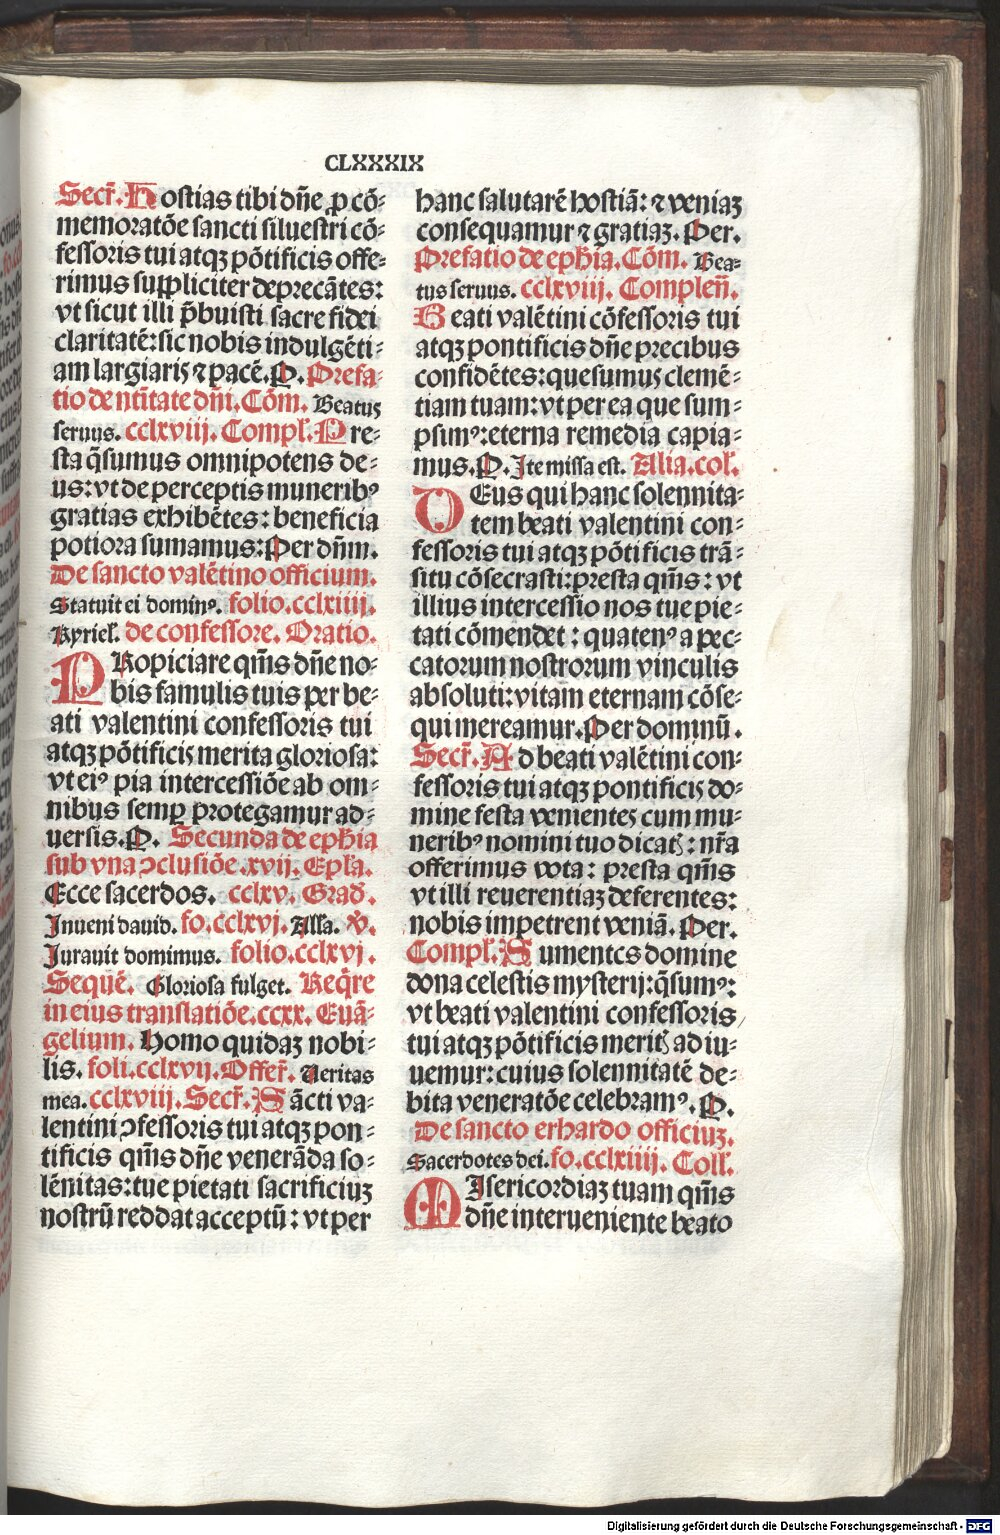 CLXXXIX
Secr̄. Hostias tibi dn̄e ꝓ cō⸗
memoratōe sancti siluestri cō⸗
fessoris tui atqꝫ pōtificis offe⸗
rimus suppliciter deprecātes:
vt sicut illi p̄buisti sacre fidei
claritatē: sic nobis indulgēti⸗
am largiaris ⁊ pacē. P. Prefa⸗
tio de nt̄itate dn̄i. Cōm. Beatus
seruus. cclxviij. Compl̄. Pre⸗
sta q̄sumus omnipotens de⸗
us: vt de perceptis muneribꝰ
gratias exhibētes: beneficia
potiora sumamus: Per dn̄m.
De sancto valētino officium.
Statuit ei dominꝰ. folio. cclxiiij.
Kyriel̄. de confessore. Oratio.
PRopiciare qm̄s dn̄e no⸗
bis famulis tuis per be⸗
ati valentini confessoris tui
atqꝫ pōtificis merita gloriosa:
vt eiꝰ pia intercessiōe ab om⸗
nibus semꝑ protegamur ad⸗
uersis. P. Secunda de eph̄ia
sub vna ↄclusiōe. xvij. Epl̄a.
Ecce sacerdos. cclxv. Grad̄.
Inueni dauid. fo. cclxvj. Alla. v̄.
Jurauit domimus. folio. cclxvj.
Sequē. Gloriosa fulget. Req̄re
in eius translatiōe. ccxx. Euā⸗
gelium. Homo quidaꝫ nobi⸗
lis. foli. cclxvij. Offer̄. Veritas
mea. cclxviij. Secr̄. Sācti va⸗
lentini ↄfessoris tui atqꝫ pon⸗
tificis qm̄s dn̄e venerāda so⸗
lēnitas: tue pietati sacrificiuꝫ
nostrū reddat acceptū: vt per
hanc salutarē hostiā: ⁊ veniaꝫ
consequamur ⁊ gratiaꝫ. Per.
Prefatio de eph̄ia. Cōm. Bea⸗
tus seruus. cclxviij. Complen̄.
Beati valētini cōfessoris tui
atqꝫ pontificis dn̄e precibus
confidētes: quesumus clemē⸗
tiam tuam: vt per ea que sum⸗
psimꝰ: eterna remedia capia⸗
mus. P. Ite missa est. Alia. col̄.
DEus qui hanc solennita⸗
tem beati valentini con⸗
fessoris tui atqꝫ pōtificis trā⸗
situ cōsecrasti: presta qm̄s: vt
illius intercessio nos tue pie⸗
tati cōmendet: quatenꝰ a pec⸗
catorum nostrorum vinculis
absoluti: vitam eternam cōse⸗
qui mereamur. Per dominū.
Secr̄. Ad beati valētini con⸗
fessoris tui atqꝫ pontificis do⸗
mine festa venientes cum mu⸗
neribꝰ nomini tuo dicatꝭ: nr̄a
offerimus vota: presta qm̄s
vt illi reuerentiaꝫ deferentes:
nobis impetrent veniā. Per.
Compl̄. Sumentes domine
dona celestis mysterij: q̄sumꝰ:
vt beati valentini confessoris
tui atqꝫ pōtificis meritꝭ adiu⸗
uemur: cuius solennitatē de⸗
bita veneratōe celebramꝰ. P.
De sancto erhardo officiuꝫ.
Sacerdotes dei. fo. cclxiiij. Coll̄.
MIsericordiaꝫ tuam qm̄s
dn̄e interueniente beato
Digitalisierung gefördert durch die Deutsche Forschungsgemeinschaft - DFG